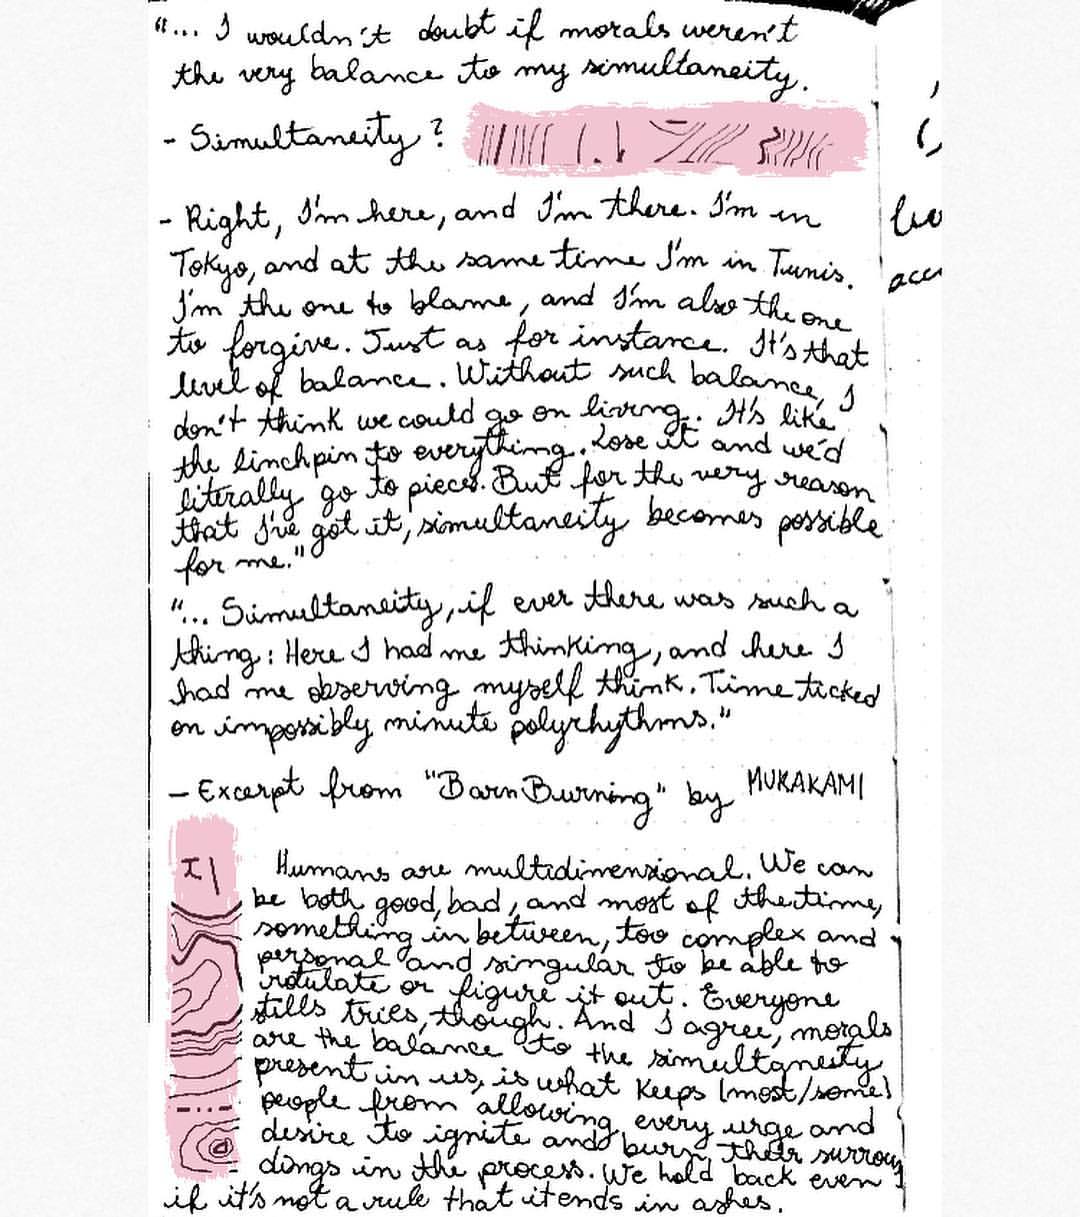 "... I wouldn't doubt if morals weren't
the very balance to my simultaneity.
- Simultaneity?
- Right, I'm here, and I'm there. I'm in
Tokyo, and at the same time I'm in Tunis.
I'm the one to blame, and I'm also the one
to forgive. Just as for instance. It's that
level of balance. Without such balance, I
don't think we could go on living. It's like
the linchpin to everything. Lose it and we'd
literally go to pieces. But for the very reason
that I've got it, simultaneity becomes possible
for me."
"... Simultaneity, if ever there was such a
thing: Here I had me thinking, and here I
had me observing myself think. Time ticked
on impossibly minute polyrhythms."
- Excerpt from "Barn Burning" by MURAKAMI
Humans are multidimensional. We can
be both good, bad, and most of the time,
something in between, too complex and
personal and singular to be able to
rotulate or figure it out. Everyone
stills tries, though. And I agree, morals
are the balance to the simultaneity
present in us, is what keeps (most/some)
people from allowing every urge and
desire to ignite and burn their surroun
dings in the process. We hold back even
if it's not a rule that it ends in ashes.